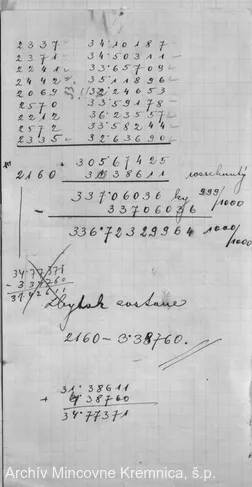 2337 34·10187
2371 34·50311
2241 33·65709
2442 35·11896
2069 32·24653
2570 33·59178
2212 36·23557
2572 33·58244
2335 32·63690
305·67425
2160 31·38611
337·06036 kg 999/1000
- 33706036
336·72329964 1000/1000
34·77371
- 3 38760
31·42611
Zbytok zostane
2160 — 3·38760.
31·38611
+ 3·38760
34·77371
Archív Mincovne Kremnica, š.p.